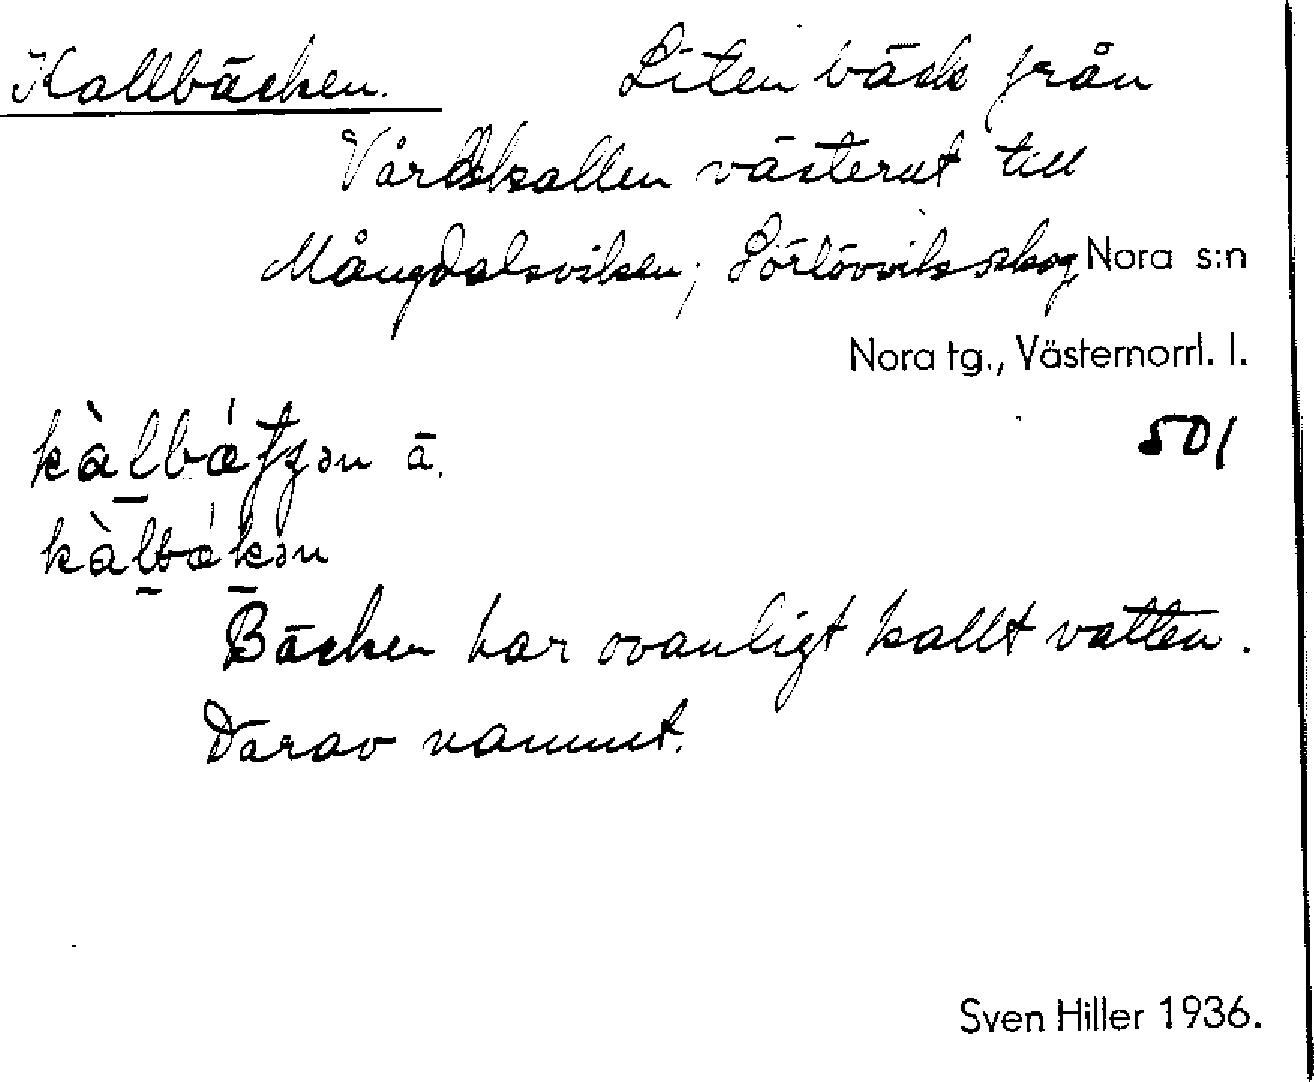 Kallbäcken. Liten bäck från
Vårdkallen västerut till
Mångdalsviken; Sörlövviks skog Nora s:n
Nora tg., Västernorrl. l.
501
ä.
Bäcken har ovanligt kallt vatten.
Därav namnet.
Sven Hiller 1936.